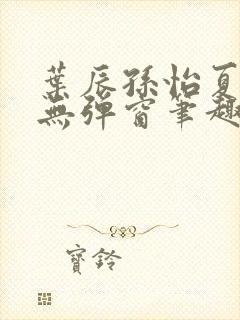 葉辰孫怡夏
無彈窗筆趣
寶鈴